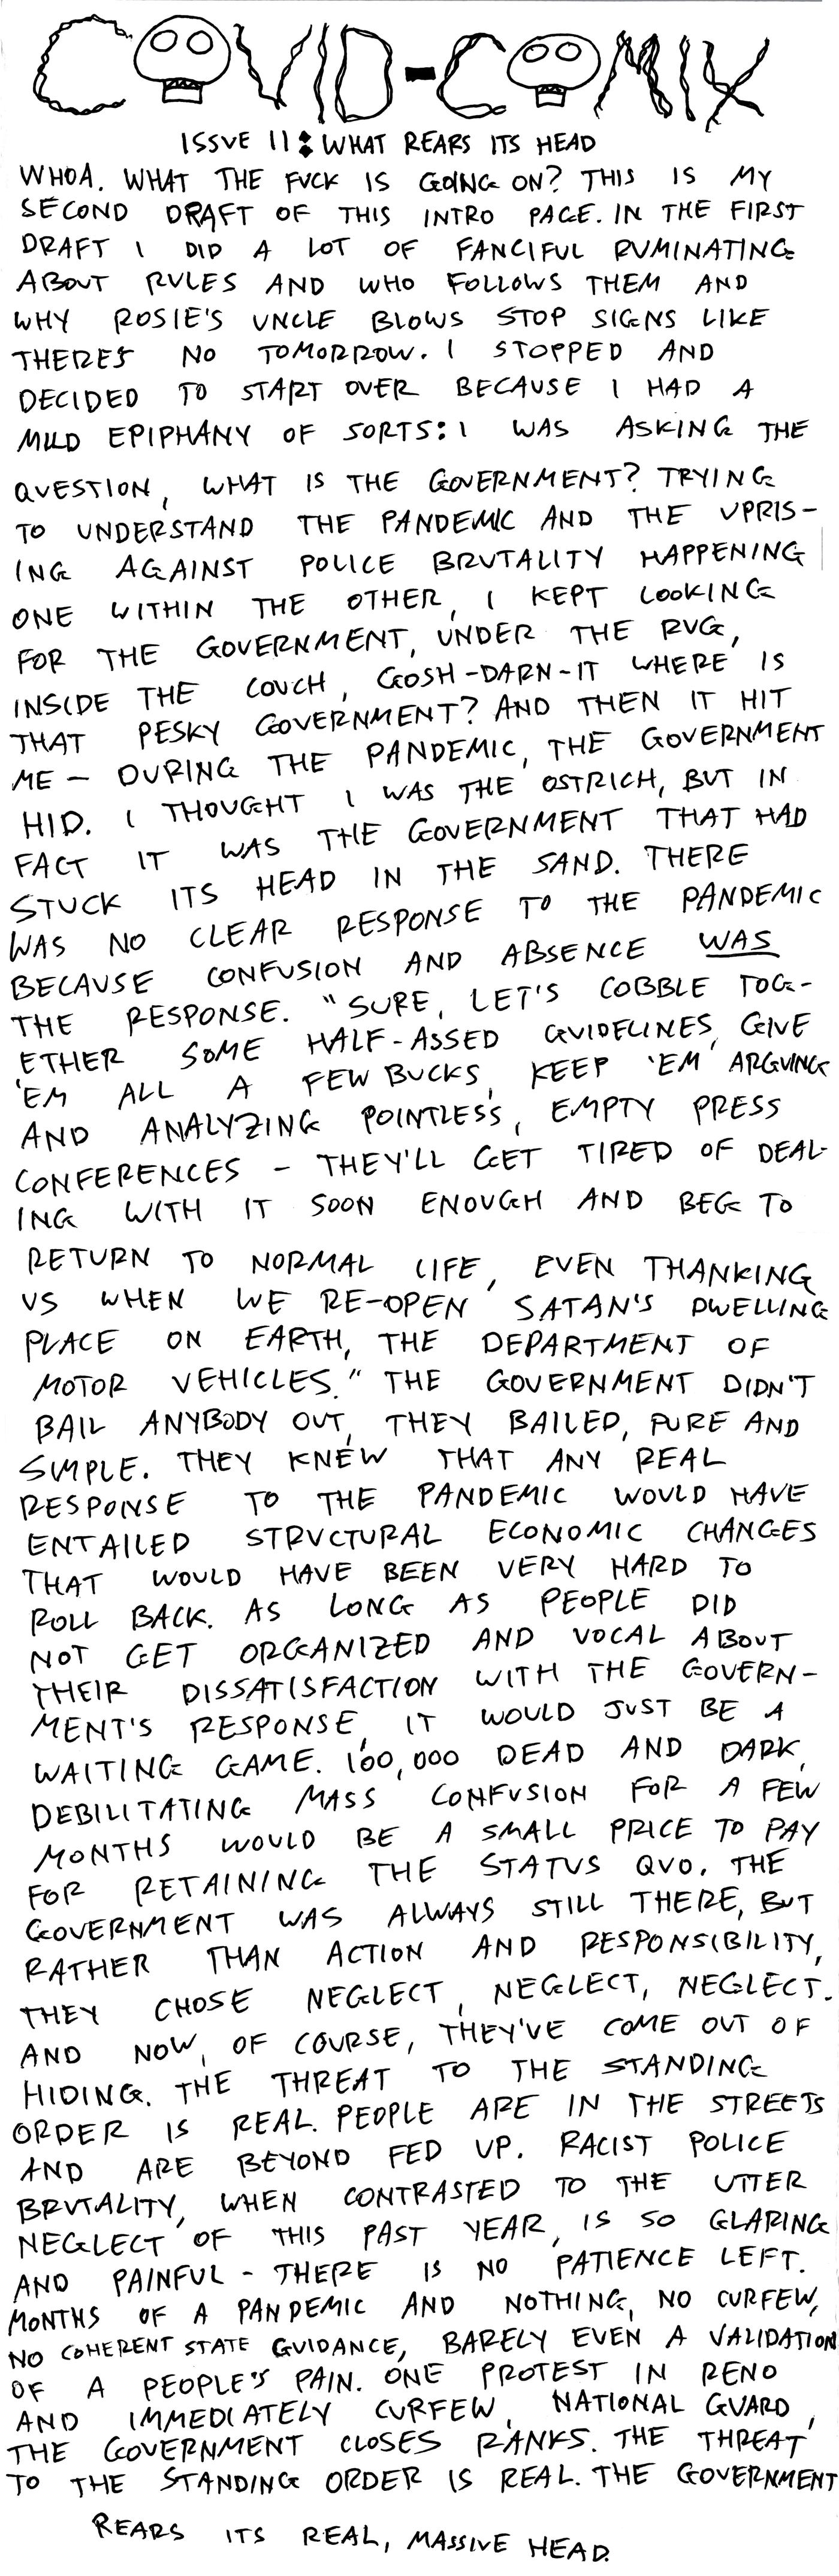 COVID-COMIX
ISSUE 11: WHAT REARS ITS HEAD
WHOA. WHAT THE FUCK IS GOING ON? THIS IS MY
SECOND DRAFT OF THIS INTRO PAGE. IN THE FIRST
DRAFT I DID A LOT OF FANCIFUL RUMINATING
ABOUT RULES AND WHO FOLLOWS THEM AND
WHY ROSIE'S UNCLE BLOWS STOP SIGNS LIKE
THERE'S NO TOMORROW. I STOPPED AND
DECIDED TO START OVER BECAUSE I HAD A
MILD EPIPHANY OF SORTS: I WAS ASKING THE
QUESTION, WHAT IS THE GOVERNMENT? TRYING
TO UNDERSTAND THE PANDEMIC AND THE UPRIS-
ING AGAINST POLICE BRUTALITY HAPPENING
ONE WITHIN THE OTHER, I KEPT LOOKING
FOR THE GOVERNMENT, UNDER THE RUG,
INSIDE THE COUCH, GOSH-DARN-IT WHERE IS
THAT PESKY GOVERNMENT? AND THEN IT HIT
ME - DURING THE PANDEMIC, THE GOVERNMENT
HID. I THOUGHT I WAS THE OSTRICH, BUT IN
FACT IT WAS THE GOVERNMENT THAT HAD
STUCK ITS HEAD IN THE SAND. THERE
WAS NO CLEAR RESPONSE TO THE PANDEMIC
BECAUSE CONFUSION AND ABSENCE WAS
THE RESPONSE. "SURE, LET'S COBBLE TOG-
ETHER SOME HALF-ASSED GUIDELINES, GIVE
'EM ALL A FEW BUCKS, KEEP 'EM ARGUING
AND ANALYZING POINTLESS, EMPTY PRESS
CONFERENCES - THEY'LL GET TIRED OF DEAL-
ING WITH IT SOON ENOUGH AND BEG TO
RETURN TO NORMAL LIFE, EVEN THANKING
US WHEN WE RE-OPEN SATAN'S DWELLING
PLACE ON EARTH, THE DEPARTMENT OF
MOTOR VEHICLES." THE GOVERNMENT DIDN'T
BAIL ANYBODY OUT, THEY BAILED, PURE AND
SIMPLE. THEY KNEW THAT ANY REAL
RESPONSE TO THE PANDEMIC WOULD HAVE
ENTAILED STRUCTURAL ECONOMIC CHANGES
THAT WOULD HAVE BEEN VERY HARD TO
ROLL BACK. AS LONG AS PEOPLE DID
NOT GET ORGANIZED AND VOCAL ABOUT
THEIR DISSATISFACTION WITH THE GOVERN-
MENT'S RESPONSE, IT WOULD JUST BE A
WAITING GAME. 100,000 DEAD AND DARK,
DEBILITATING MASS CONFUSION FOR A FEW
MONTHS WOULD BE A SMALL PRICE TO PAY
FOR RETAINING THE STATUS QUO. THE
GOVERNMENT WAS ALWAYS STILL THERE, BUT
RATHER THAN ACTION AND RESPONSIBILITY,
THEY CHOSE NEGLECT, NEGLECT, NEGLECT.
AND NOW, OF COURSE, THEY'VE COME OUT OF
HIDING. THE THREAT TO THE STANDING
ORDER IS REAL. PEOPLE ARE IN THE STREETS
AND ARE BEYOND FED UP. RACIST POLICE
BRUTALITY, WHEN CONTRASTED TO THE UTTER
NEGLECT OF THIS PAST YEAR, IS SO GLARING
AND PAINFUL - THERE IS NO PATIENCE LEFT.
MONTHS OF A PANDEMIC AND NOTHING, NO CURFEW,
NO COHERENT STATE GUIDANCE, BARELY EVEN A VALIDATION
OF A PEOPLE'S PAIN. ONE PROTEST IN RENO
AND IMMEDIATELY CURFEW, NATIONAL GUARD,
THE GOVERNMENT CLOSES RANKS. THE THREAT
TO THE STANDING ORDER IS REAL. THE GOVERNMENT
REARS ITS REAL, MASSIVE HEAD.